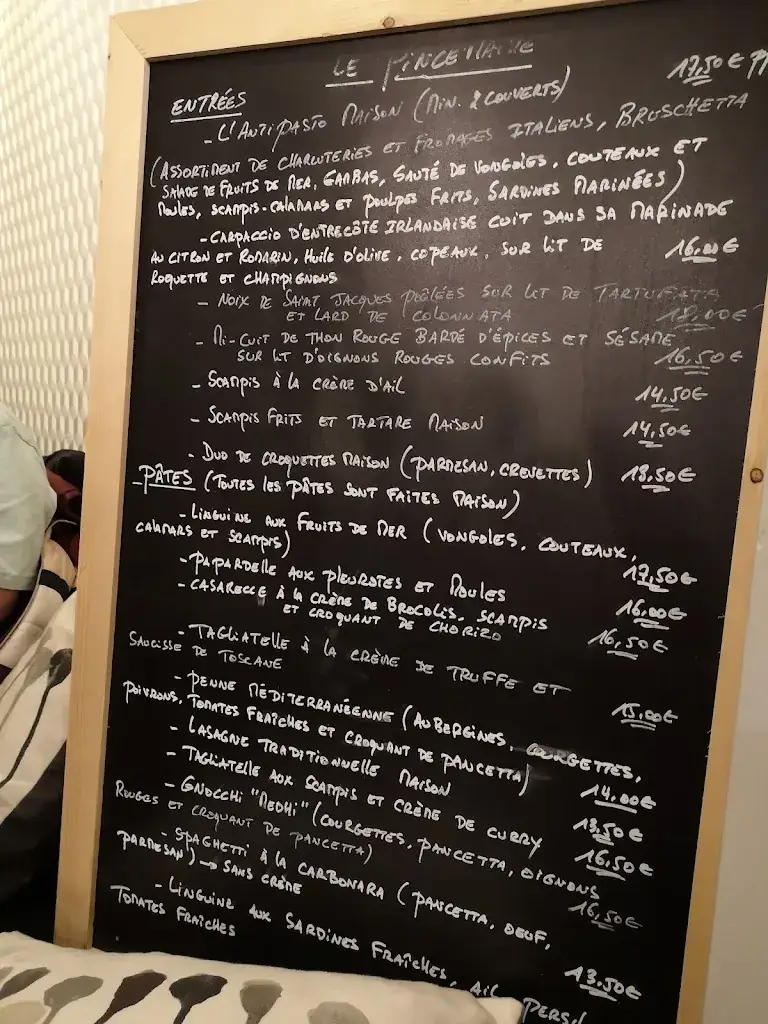 LE PINCENAIRE
ENTRÉES
17,50€ PP
- L'ANTIPASTO MAISON (MIN. 2 COUVERTS)
(ASSORTIMENT DE CHARCUTERIES ET FROMAGES ITALIENS, BRUSCHETTA
SALADE DE FRUITS DE MER, GAMBAS, SAUTÉ DE VONGOLES, COUTEAUX ET
MOULES, SCAMPIS-CALAMARS ET POULPES FRITS, SARDINES MARINÉES)
- CARPACCIO D'ENTRECÔTE IRLANDAISE CUIT DANS SA MARINADE
AU CITRON ET ROMARIN, HUILE D'OLIVE, COPEAUX, SUR LIT DE 16,00€
ROQUETTE ET CHAMPIGNONS
- NOIX DE SAINT JACQUES POÊLÉES SUR LIT DE TARTUFATA
ET LARD DE COLONNATA 18,00€
- MI-CUIT DE THON ROUGE BARDÉ D'ÉPICES ET SÉSAME
SUR LIT D'OIGNONS ROUGES CONFITS 16,50€
- SCAMPIS À LA CRÈME D'AIL 14,50€
- SCAMPIS FRITS ET TARTARE MAISON 14,50€
- DUO DE CROQUETTES MAISON (PARMESAN, CREVETTES) 13,50€
- PÂTES (TOUTES LES PÂTES SONT FAITES MAISON)
- LINGUINE AUX FRUITS DE MER (VONGOLES, COUTEAUX,
CALAMARS ET SCAMPIS) 17,50€
- PAPARDELLE AUX PLEUROTES ET MOULES 16,00€
- CASARECCE À LA CRÈME DE BROCOLIS, SCAMPIS
ET CROQUANT DE CHORIZO 16,50€
- TAGLIATELLE À LA CRÈME DE TRUFFE ET
SAUCISSE DE TOSCANE 15,00€
- PENNE MÉDITERRANÉENNE (AUBERGINES, COURGETTES,
POIVRONS, TOMATES FRAÎCHES ET CROQUANT DE PANCETTA) 14,00€
- LASAGNE TRADITIONNELLE MAISON 13,50€
- TAGLIATELLE AUX SCAMPIS ET CRÈME DE CURRY 16,50€
- GNOCCHI "MEDHI" (COURGETTES, PANCETTA, OIGNONS
ROUGES ET CROQUANT DE PANCETTA) 16,50€
- SPAGHETTI À LA CARBONARA (PANCETTA, OEUF,
PARMESAN) → SANS CRÈME 13,50€
- LINGUINE AUX SARDINES FRAÎCHES, AIL, PERSIL
TOMATES FRAÎCHES